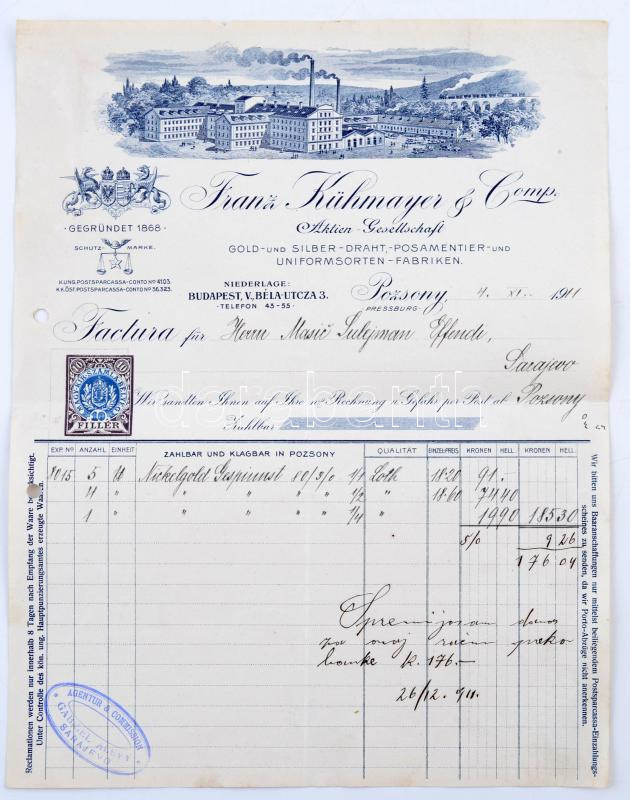 Franz Kühmayer & Comp.
Aktien-Gesellschaft
·GEGRÜNDET 1868·
GOLD-UND SILBER-DRAHT,-POSAMENTIER-UND
UNIFORMSORTEN-FABRIKEN.
SCHUTZ- MARKE.
K.UNG. POSTSPARCASSA-CONTO Nº 4103.
K.K.ÖST. POSTSPARCASSA-CONTO Nº 56.323.
NIEDERLAGE:
BUDAPEST, V., BÉLA-UTCZA 3.
·TELEFON 43-55·
Pozsony, 4. XI. 1911
PRESSBURG
Factura für Herrn Masić Sulejman Effendi,
Sarajevo
10 10
FILLÉR
Wir sandten Ihnen auf Ihre w. Rechnung u. Gefahr per Post ab Pozsony
Zahlbar
darabanth
EXP. Nº ANZAHL EINHEIT ZAHLBAR UND KLAGBAR IN POZSONY QUALITÄT EINZEL-PREIS KRONEN HELL. KRONEN HELL.
8015 5 Nickelgold Gespunst 80/3/0 1/1 Loth 18·20 91.-
4 " " " " " 1/2 " 18·60 74 40
1 " " " " " 1/4 " 19 90 185 30
5/0 9 26
176 04
za ovaj račun preko
banke K. 176.—
26/12. 911.
AGENTUR & COMMISSION
SARAJEVO
Reclamationen werden nur innerhalb 8 Tagen nach Empfang der Waare berücksichtigt.
Unter Controlle des kön. ung. Hauptpunzierungsamtes erzeugte Waaren.
Wir bitten uns Baaranschaffungen nur mittelst beiliegendem Postsparcassa-Einzahlungs-
scheines zu senden, da wir Porto-Abzüge nicht anerkennen.